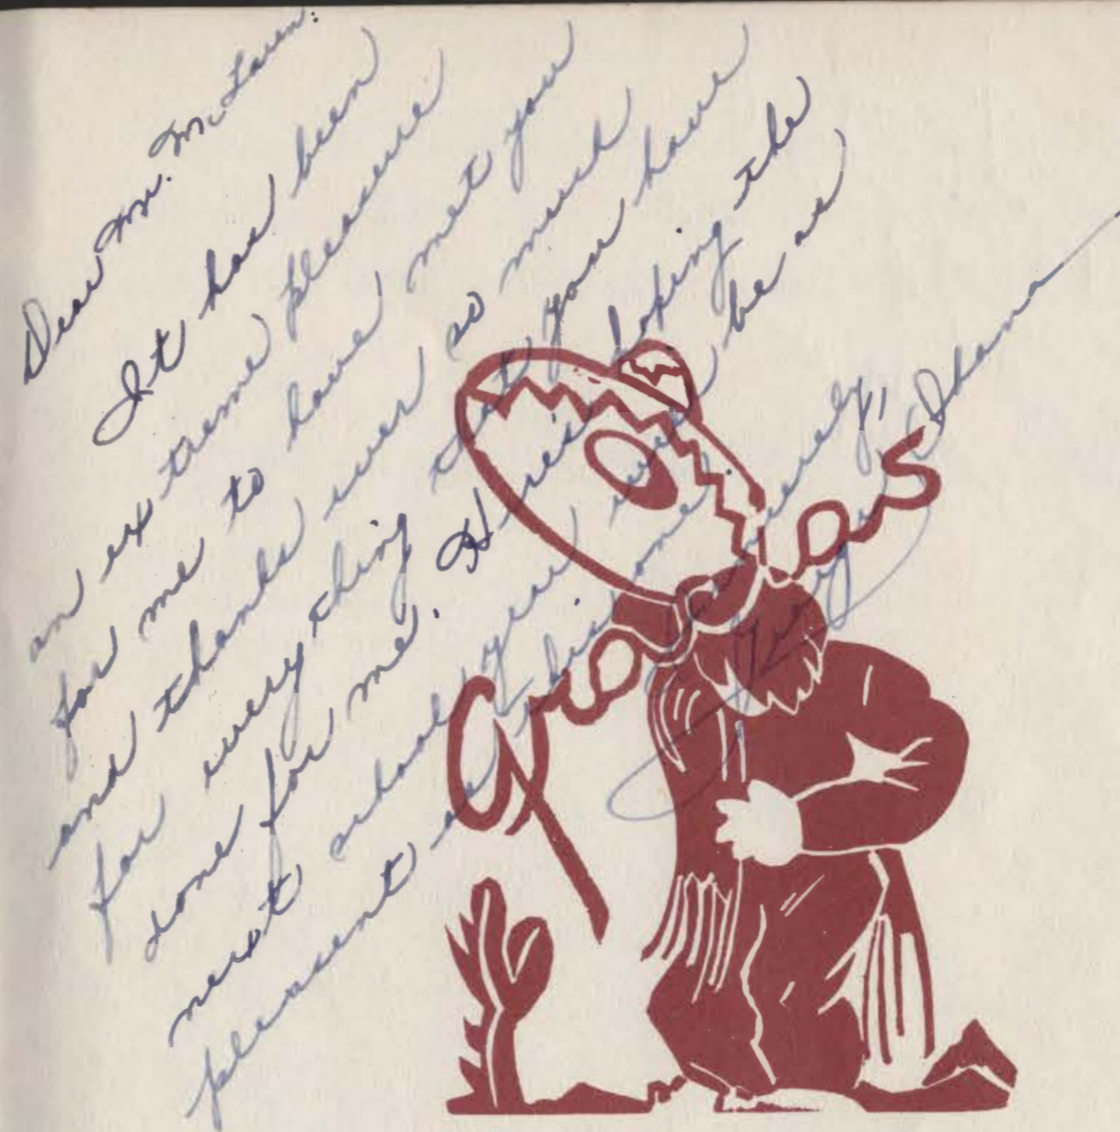 Dear Mr. McLaren:
It has been
an extreme pleasure
for me to have met you
and thanks ever so much
for every thing that you have
done for me. Here's hoping the
next school year will be as
pleasent as this one.
Sincerely,
Ohana
Gracias